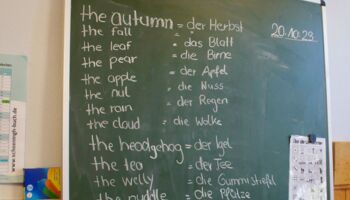 the autumn = der Herbst
20.10.23
the fall
the leaf = das Blatt
the pear = die Birne
the apple = der Apfel
the nut = die Nuss
the rain = der Regen
the cloud = die Wolke
the headgehog = der Igel
the tea = der Tee
the welly = die Gummistiefel
the puddle = die Pfütze